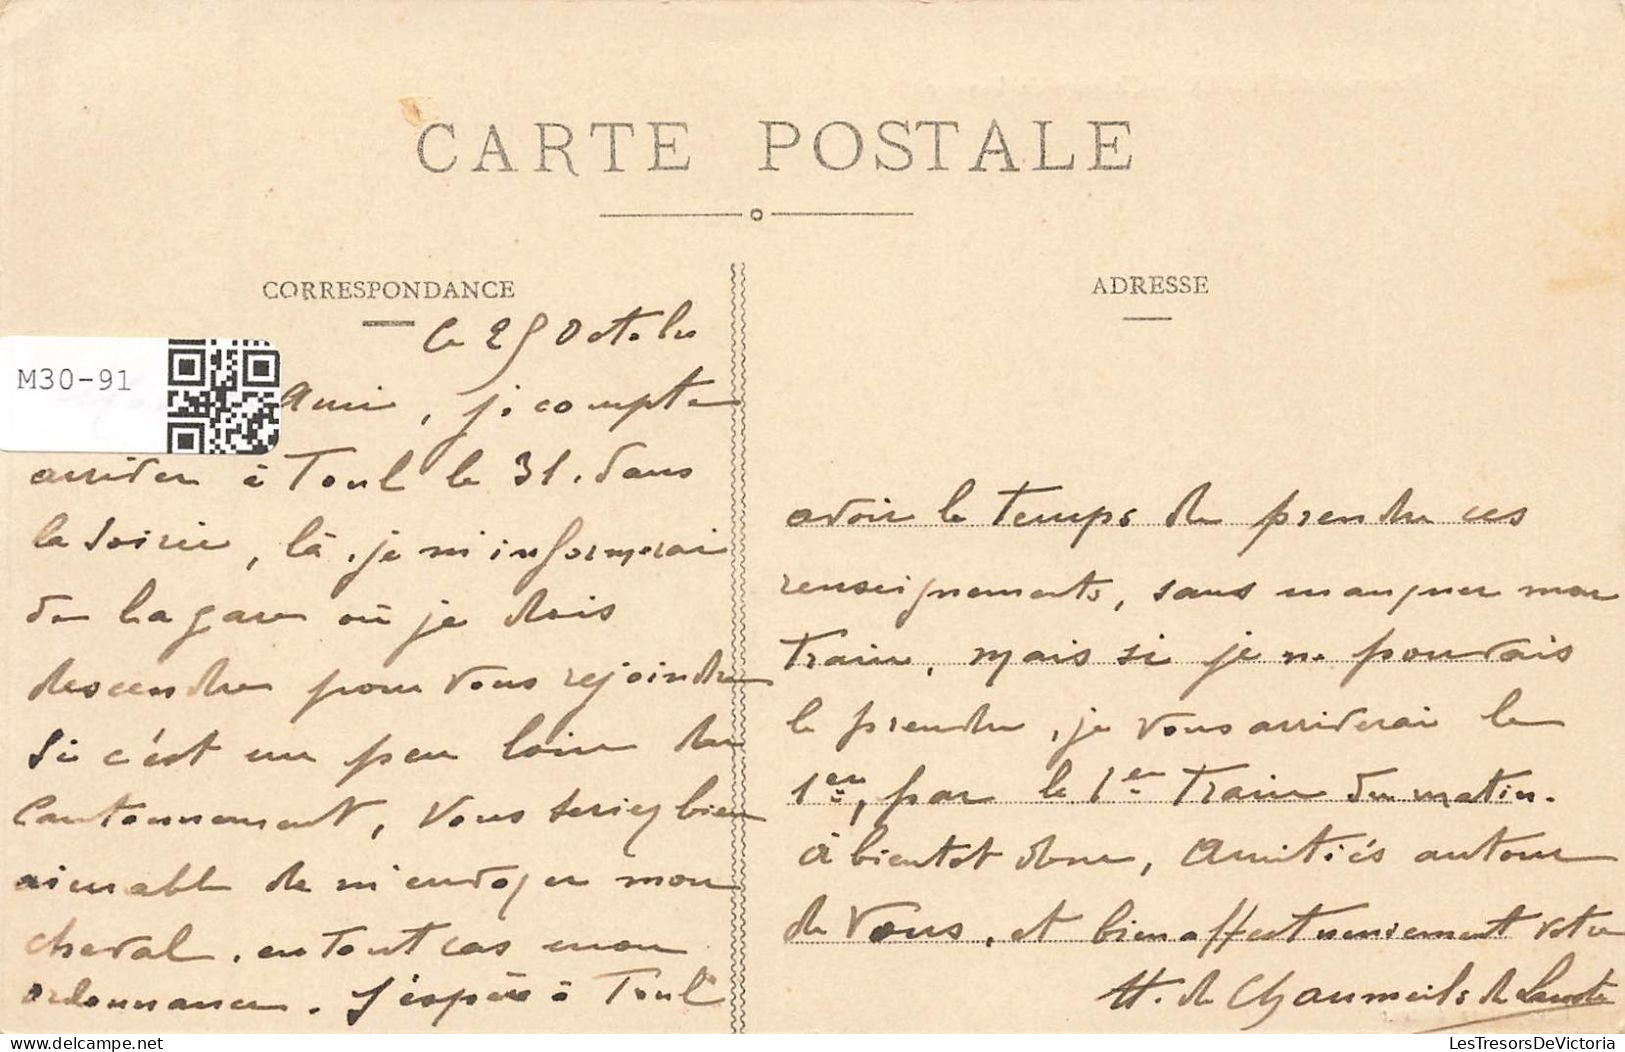 CARTE POSTALE
CORRESPONDANCE
ADRESSE
M30-91
le 25 Octobre
Ami, je compte
arriver à Toul le 31. dans
la soirée, là, je m'informerai
de la gare où je dois
descendre pour vous rejoindre
Si c'est un peu loin du
Cantonnement, vous seriez bien
aimable de m'envoyer mon
cheval. en tout cas mon
ordonnance. J'espère à Toul
avoir le temps de prendre ces
renseignements, sans manquer mon
train, mais si je ne pouvais
le prendre, je vous arriverai le
1er, par le 1er train du matin.
à bientôt donc, Amitiés autour
de vous, et bien affectueusement votre
H. de Chaumeils de
LesTresorsDeVictoria.com